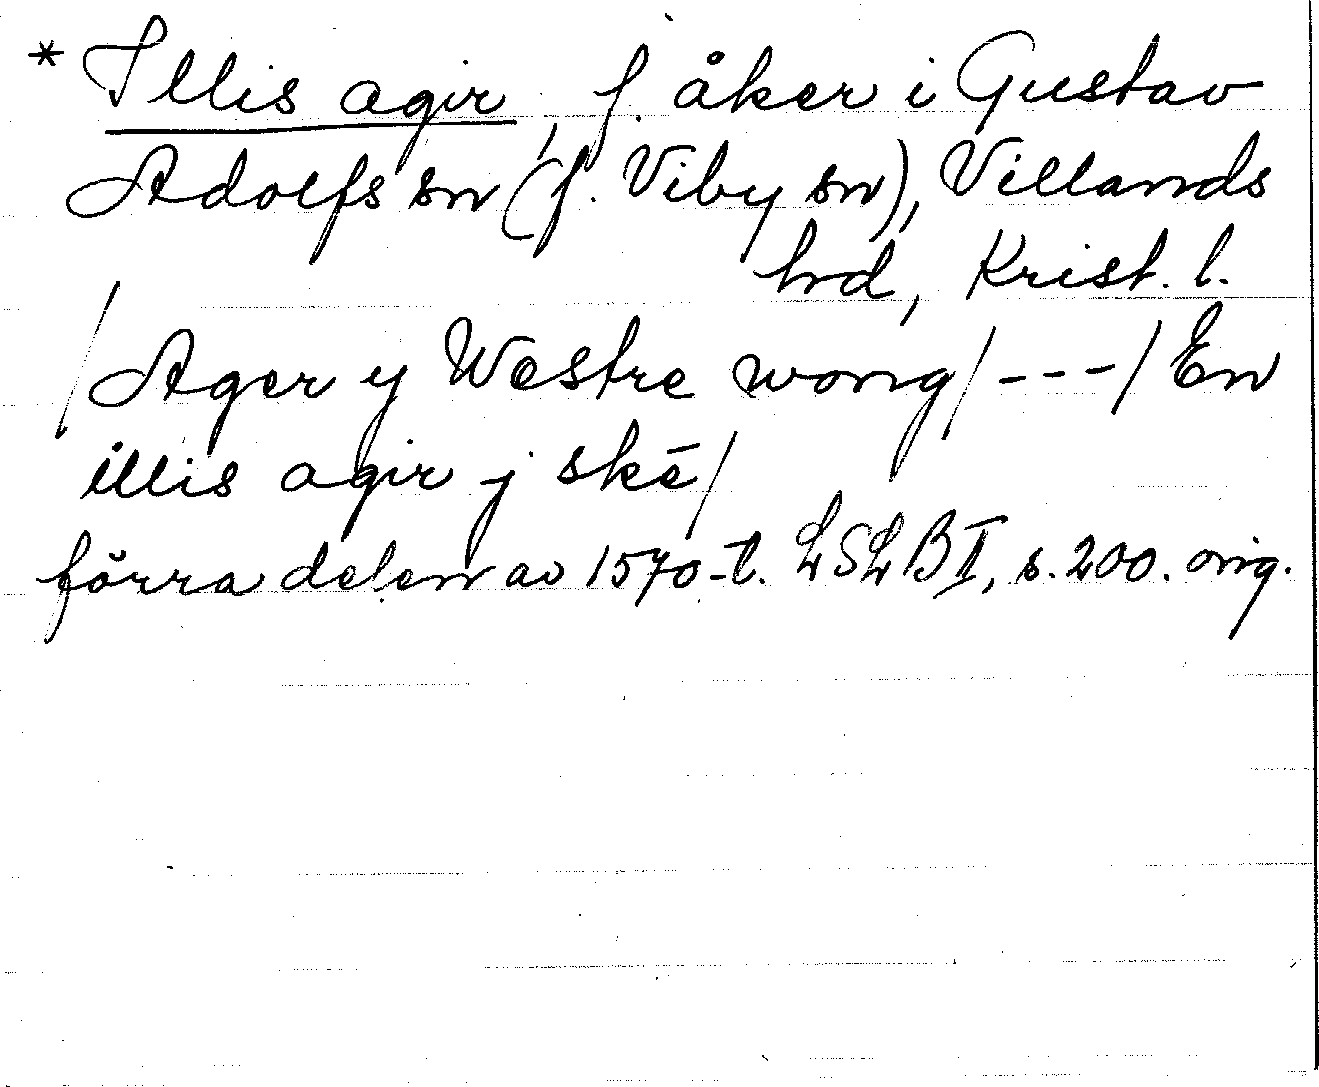 * Illis agir, f. åker i Gustav
Adolfs sn (f. Viby sn), Villands
hd, Krist. l.
/Ager y Westre wong/ --- / En
illis agir j skē/
förra delen av 1570-t. LSLB II, s. 200. orig.